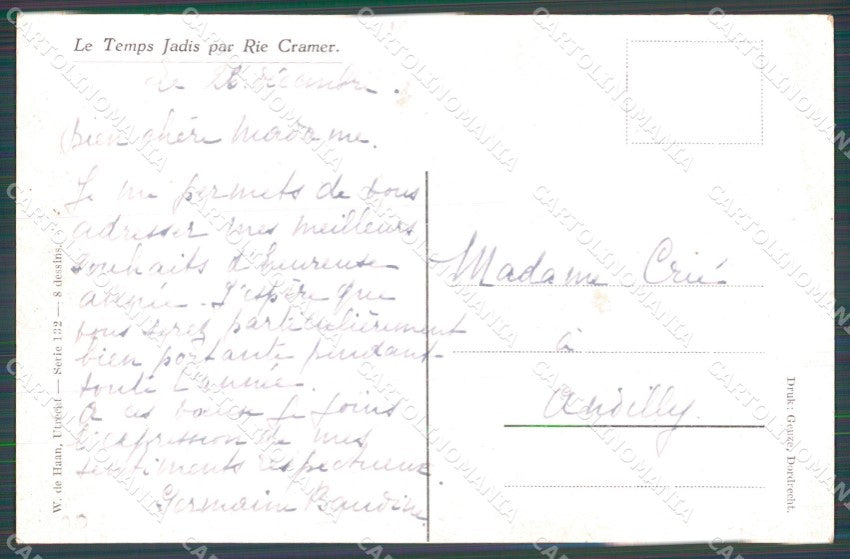 Le Temps Jadis par Rie Cramer.
Le 28 décembre.
bien chère Madame.
Je me permets de vous
adresser mes meilleurs
souhaits d'heureuse
année. J'espère que
vous serez particulièrement
bien portante pendant
toute l'année.
A ces voeux je joins
l'expression de mes
sentiments respectueux.
Germaine
Madame Crié
à
Andilly
W. de Haan, Utrecht — Serie 132 — 8 dessins.
Druk: Geuze, Dordrecht.
CARTOLINOMANIA